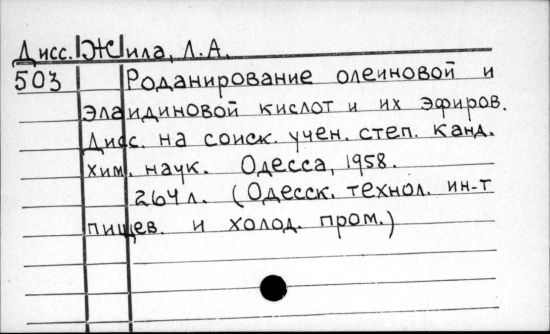 Дисс. Жила, Л.А.
503 Роданирование олеиновой и
элаидиновой кислот и их эфиров.
Дисс. на соиск. учен. степ. канд.
хим. наук. Одесса, 1958.
264 л. (Одесск. технол. ин-т
пищев. и холод. пром.)